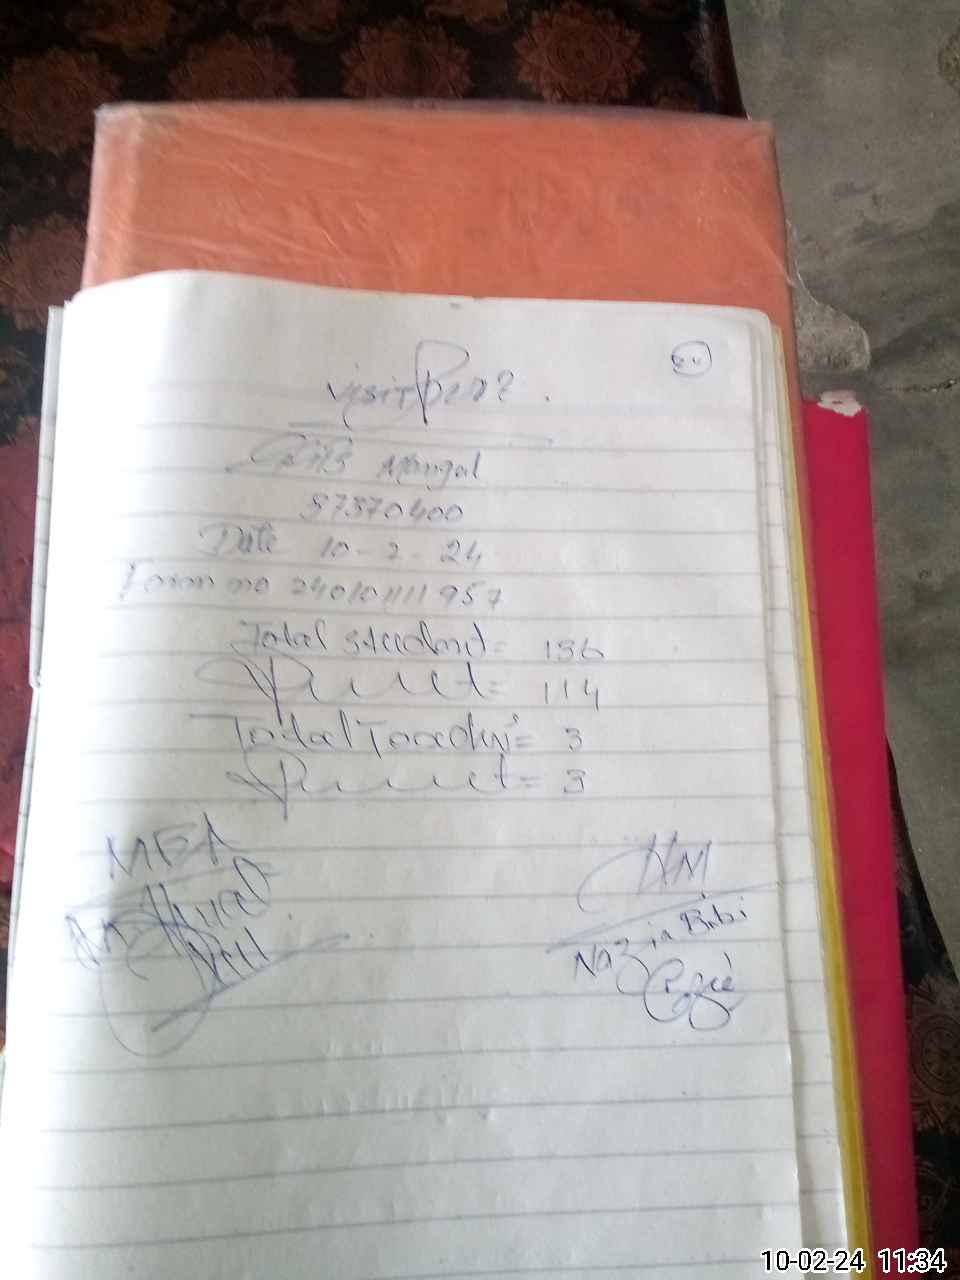 Visit
Mangal
37370400
Date 10-2-24
Form no 240101111957
Total student = 136
Present = 114
Total Teacher's = 3
Present = 3
MEA
HM
Nazia Bibi
10-02-24 11:34